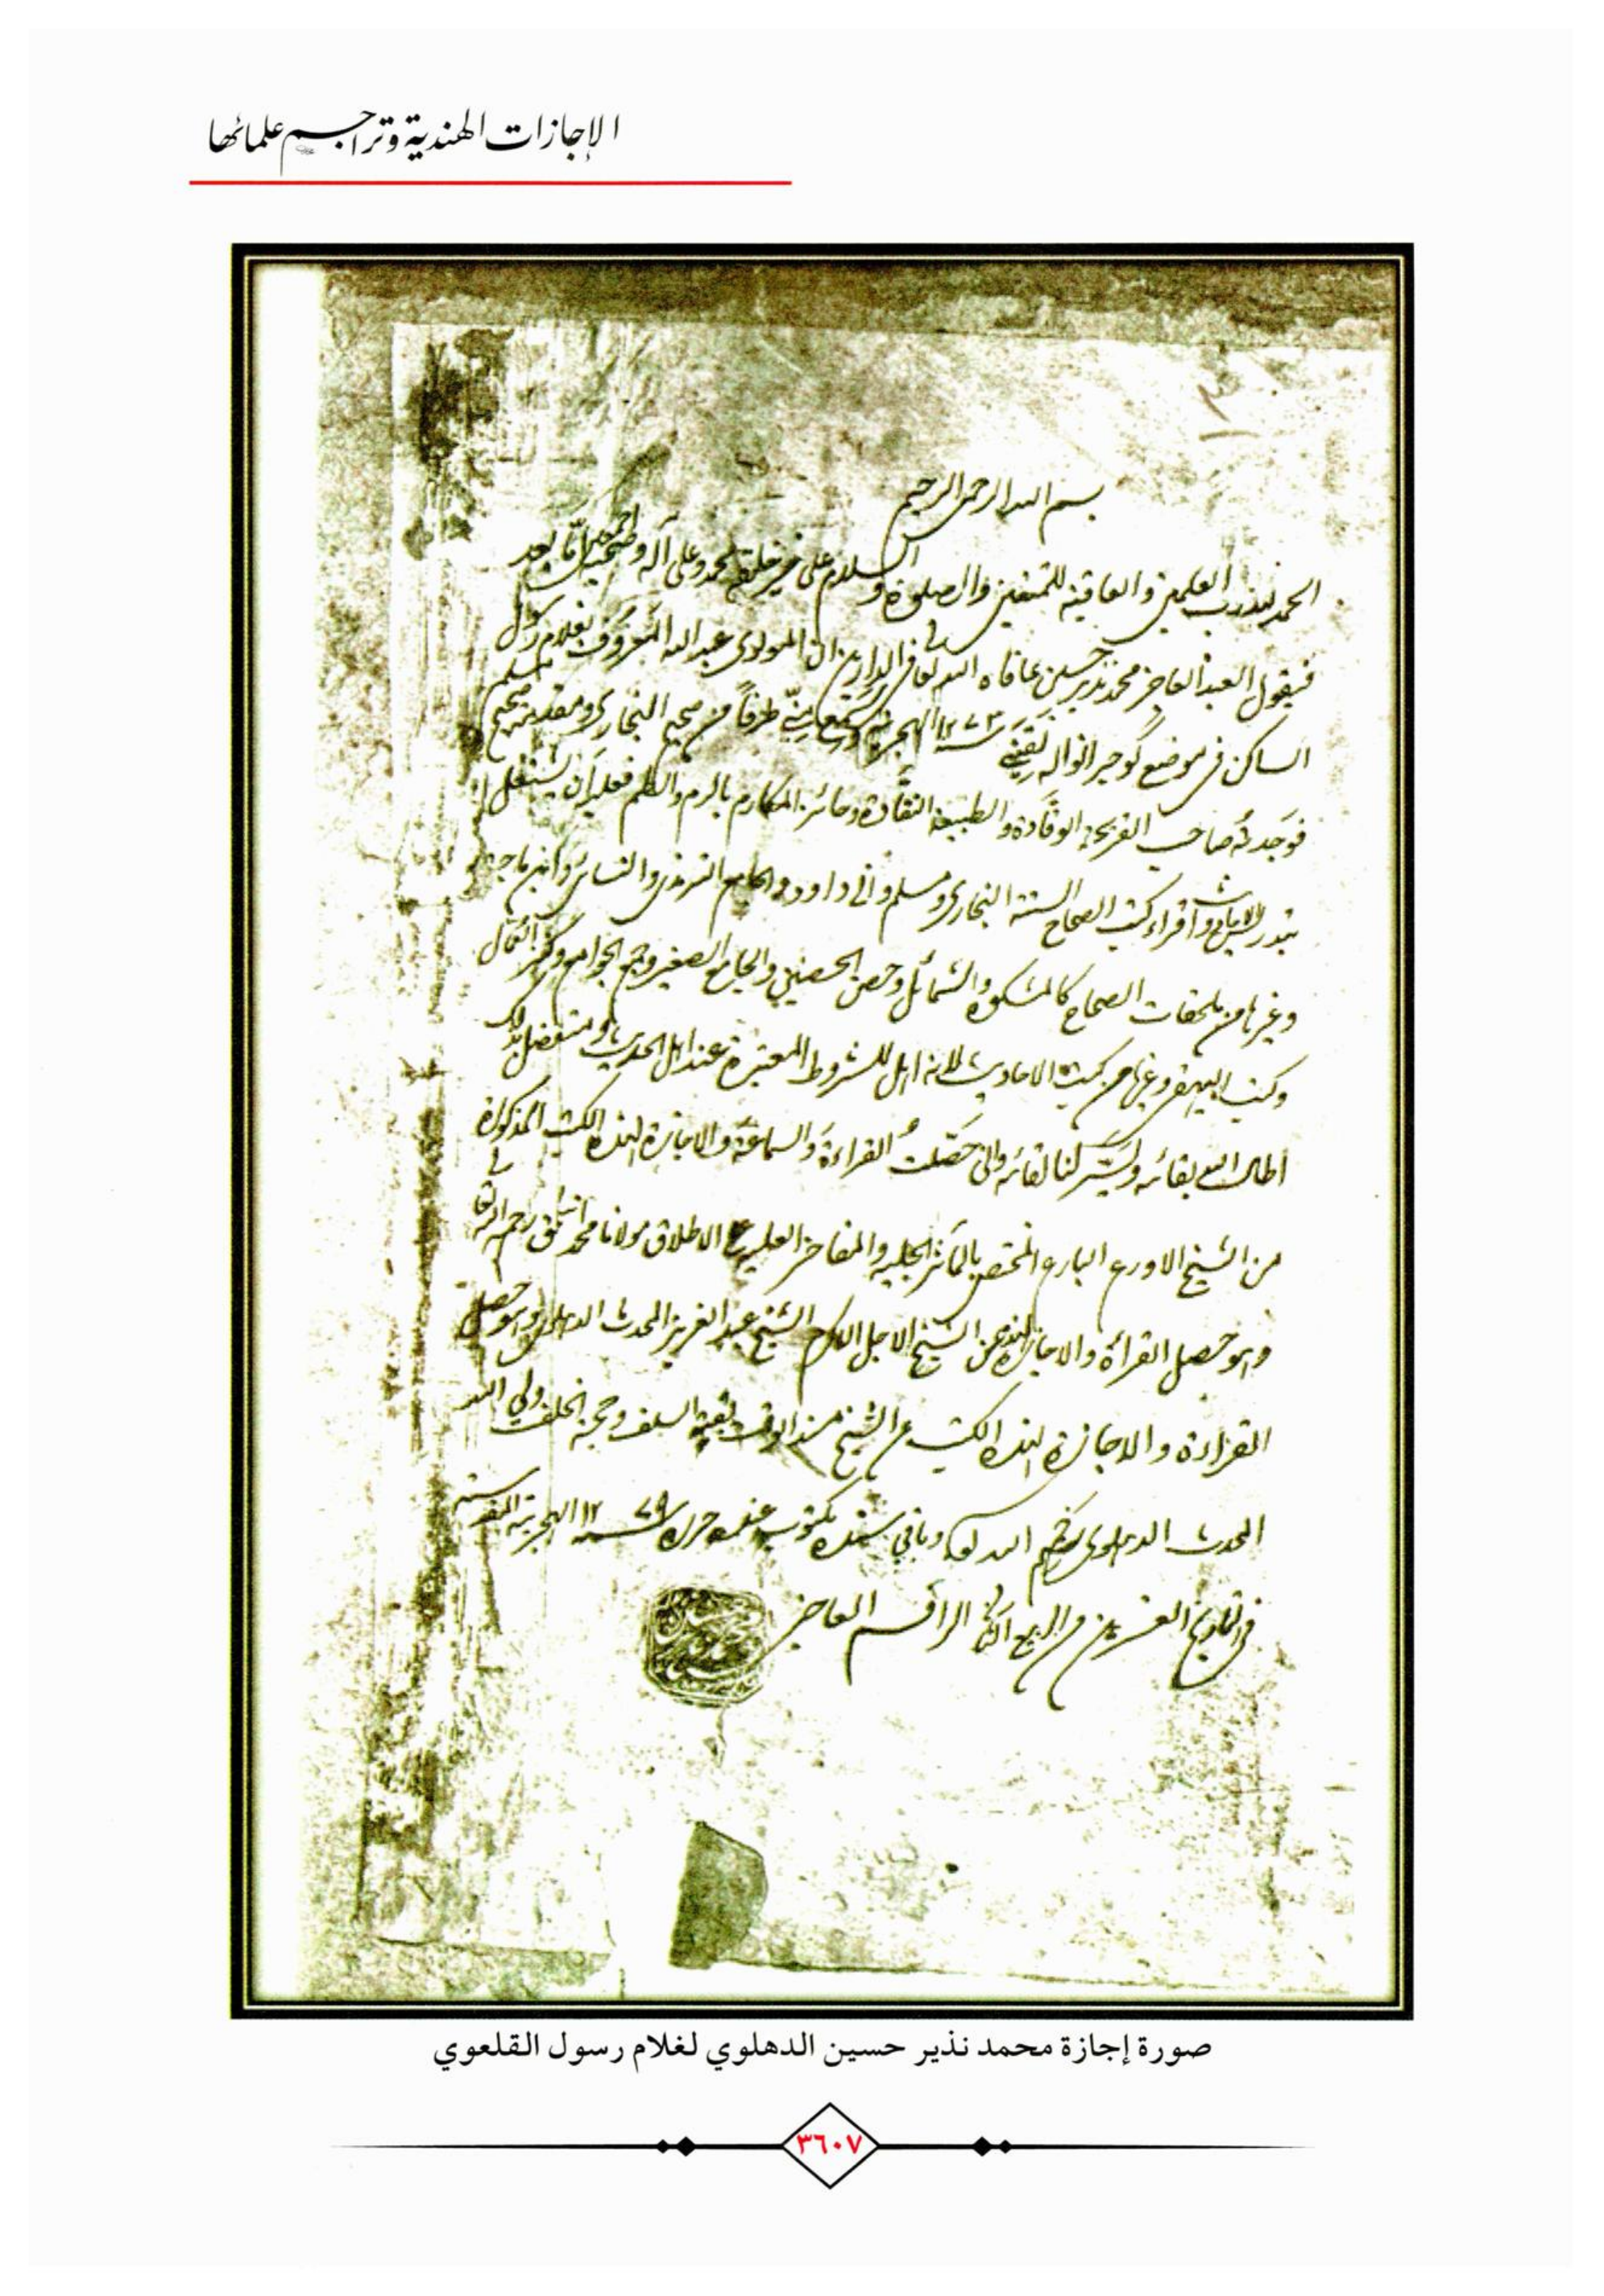 الإجازات الهندية وتراجم علمائها
بسم الله الرحمن الرحيم
الحمد لله رب العلمين والعاقبة للمتقين والصلوة والسلام على خير خلقه محمد وعلى آله وصحبه اجمعين اما بعد
فيقول العبد العاجز محمد نذير حسين عافاه الله تعالى في الدارين ان المولوى عبد الله المعروف بغلام رسول
الساكن في موضع گوجرانواله لقيني سنة ١٢٧٣ الهجرية وسمع مني طرفاً من صحيح البخارى ومقدمة صحيح مسلم
فوجدته صاحب القريحة الوقادة والطبيعة النقادة وحائز المكارم فعليه ان يشتغل
واقراء كتب الصحاح الستة البخارى ومسلم وابي داود والجامع الترمذى والنسائى وابن ماجة
وغيرها من ملحقات الصحاح كالمشكوة والشمائل وحصن الحصين والجامع الصغير وجمع الجوامع وكنز العمال
وكتب البيهقى وغيرها من كتب الاحاديث لانه اهل للشروط المعتبرة عند اهل الحديث
اطال الله بقائه ويسر لنا لقائه واني حصلت القراءة والسماعة والاجازة لهذه الكتب المذكورة
من الشيخ الاورع البارع المختص بالمآثر الجليه والمفاخر العليه على الاطلاق مولانا محمد اسحق رحمه الله تعالى
وهو حصل القرأة والاجازة لهذه من الشيخ الاجل الاكرم الشيخ عبد العزيز المحدث الدهلوى وهو حصل
القراءة والاجازة لهذه الكتب عن الشيخ مسند الوقت بقية السلف وحجة الخلف ولي الله
المحدث الدهلوى رحمهم الله تعالى وباقي سنده مكتوب عنده حرره سنة ١٢٧٩ الهجرية المقدسة
في التاريخ العشرين من الربيع الثاني الراقم العاجز
صورة إجازة محمد نذير حسين الدهلوي لغلام رسول القلعوي
٣٦٠٧